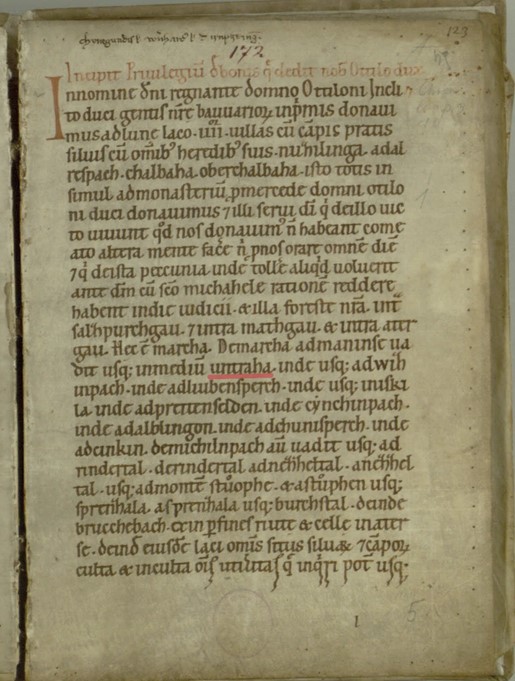 172
123
Incipit Privilegiu de bonis q dedit nob Utilo dux
In nomine dni regnante domno Ottiloni Incli
to duci gentis nre bauuarior inpmis donaui
mus ad hunc laco .iiii. uillas cu capis pratis
siluis cu omib heredib suis. nuhilinga. adal
respach. chalbaha. oberchalbaha. isto totis in
simul ad monasteriu p mercede domni otilo
ni duci donauimus 7 illi serui di q de illo uic
to uiuunt qd nos donauim n habeant come
ato altera mente face n p nos orare omne die
7 q de ista peccunia inde tolle aliqd uoluerit
ante dm cu sco michahele ratione reddere
habent in die iudicii. & illa forestit nra. int
salhpurchgau. 7 intra mathgau. & intra atr
gau. Hec e marcha. De marcha ad maninse ua
dit usq; in mediu untraha. inde usq; ad wih
inpach. inde ad liubensperch. inde usq; in iski
la. inde ad preitenselden. inde cynchinpach.
inde ad alblingon. inde ad chunisperch. inde
ad einkin. de michilnpach au uadit usq; ad
rindertal. de rindertal ad nechheltal. a nechhel
tal. usq; ad monte stuophe. & a stuphen usq;
sprenzhala. a sprenzhala usq; burchstal. deinde
bruechebach. & in p fines riute & celle in ater
se. deind eiusde laci omis situs silua & 7 capor
culta & inculta ois utilitas q inqri pot usq;
I
5